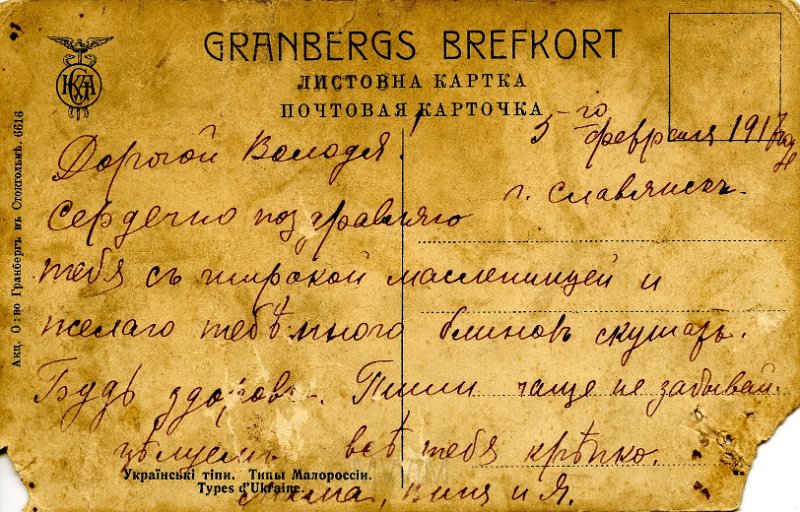 GRANBERGS BREFKORT
ЛИСТОВНА КАРТКА
ПОЧТОВАЯ КАРТОЧКА
5-го февраля 1917 года
г. Славянскъ.
Дорогой Володя!
Сердечно поздравляю
тебя съ широкой масленицей и
желаю тебѣ много блиновъ скушать.
Будь здоровъ. Пиши чаще не забывай.
цѣлуемъ всѣ тебя крѣпко.
Мама, и Я.
Українські типи. Типы Малороссіи.
Types d'Ukraine.
Акц. О:во Гранбергъ въ Стокгольмѣ. 6616